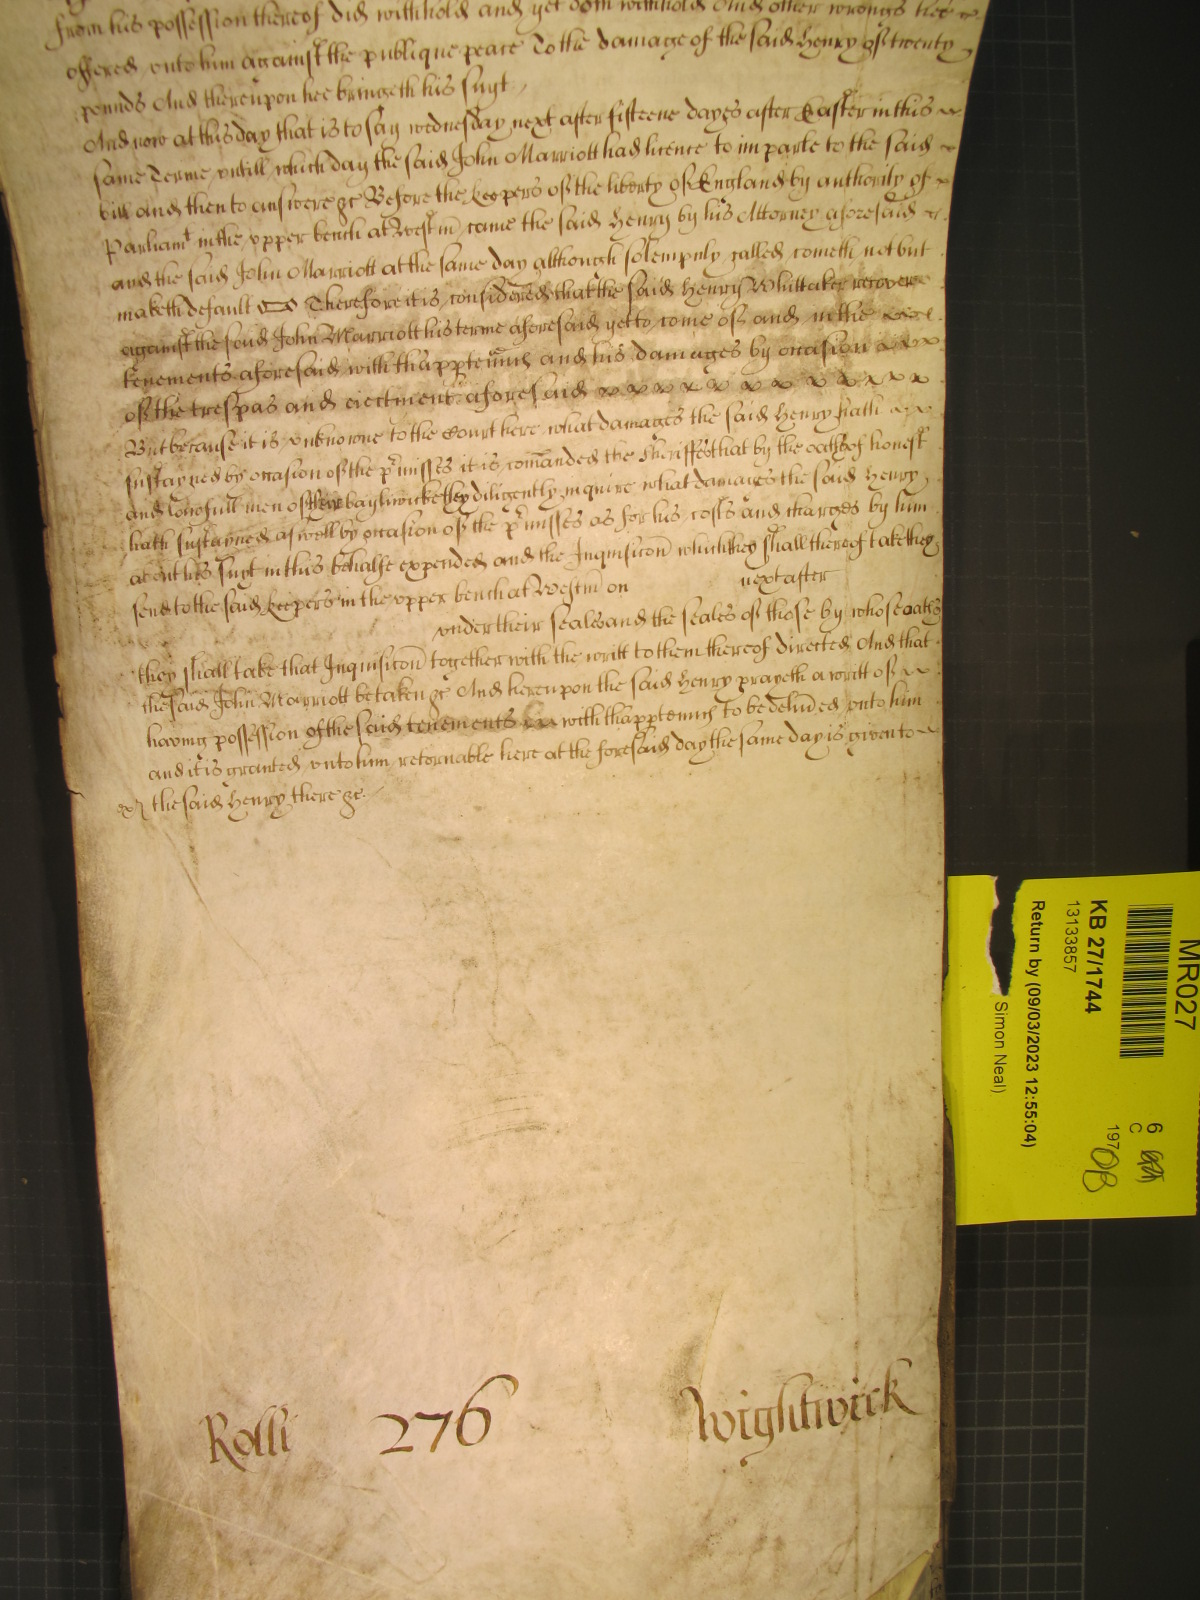 from his possession thereof did withhold and yet doth withhold And other wrongs hee
offered unto him against the publique peace To the damage of the said Henry of twenty
pounds And thereupon hee bringeth his suyt
And now at this day that is to say wednesday next after fifteene dayes after Easter in this
same Terme untill which day the said John Marriott had licence to imparle to the said
bill and then to answere &c Before the keepers of the liberty of England by authority of
Parliamt in the upper bench at Westm came the said Henry by his Attorney aforesaid
and the said John Marriott at the same day although solempnly called cometh not but
maketh default Therefore it is considered that the said Henry Whittaker recover
against the said John Marriott his terme aforesaid yet to come of and in the
tenements aforesaid with thapptenncs and his damages by occasion
of the trespas and eiectment aforesaid
But because it is unknowne to the Court here what damages the said Henry hath
sustayned by occasion of the pmisses it is comanded the Sheriffes that by the oathes of honest
and lawfull men of their bayliwicke they diligently inquire what damages the said Henry
hath sustayned as well by occasion of the pmisses as for his costs and charges by him
about his suyt in this behalfe expended and the Inquisicon which they shall thereof take they
send to the said keepers in the upper bench at Westm on next after
under their seales and the seales of those by whose oathes
they shall take that Inquisicon together with the writt to them thereof directed And that
the said John Marriott be taken &c And hereupon the said Henry prayeth a writt of
having possession of the said tenements with thapptenncs to be delived unto him
and it is granted unto him retornable here at the foresaid day the same day is given to
the said Henry there &c
Rolli 276 Wightwick
MR027
KB 27/1744
13133857
Return by (09/03/2023 12:55:04)
Simon Neal)
6
C
197